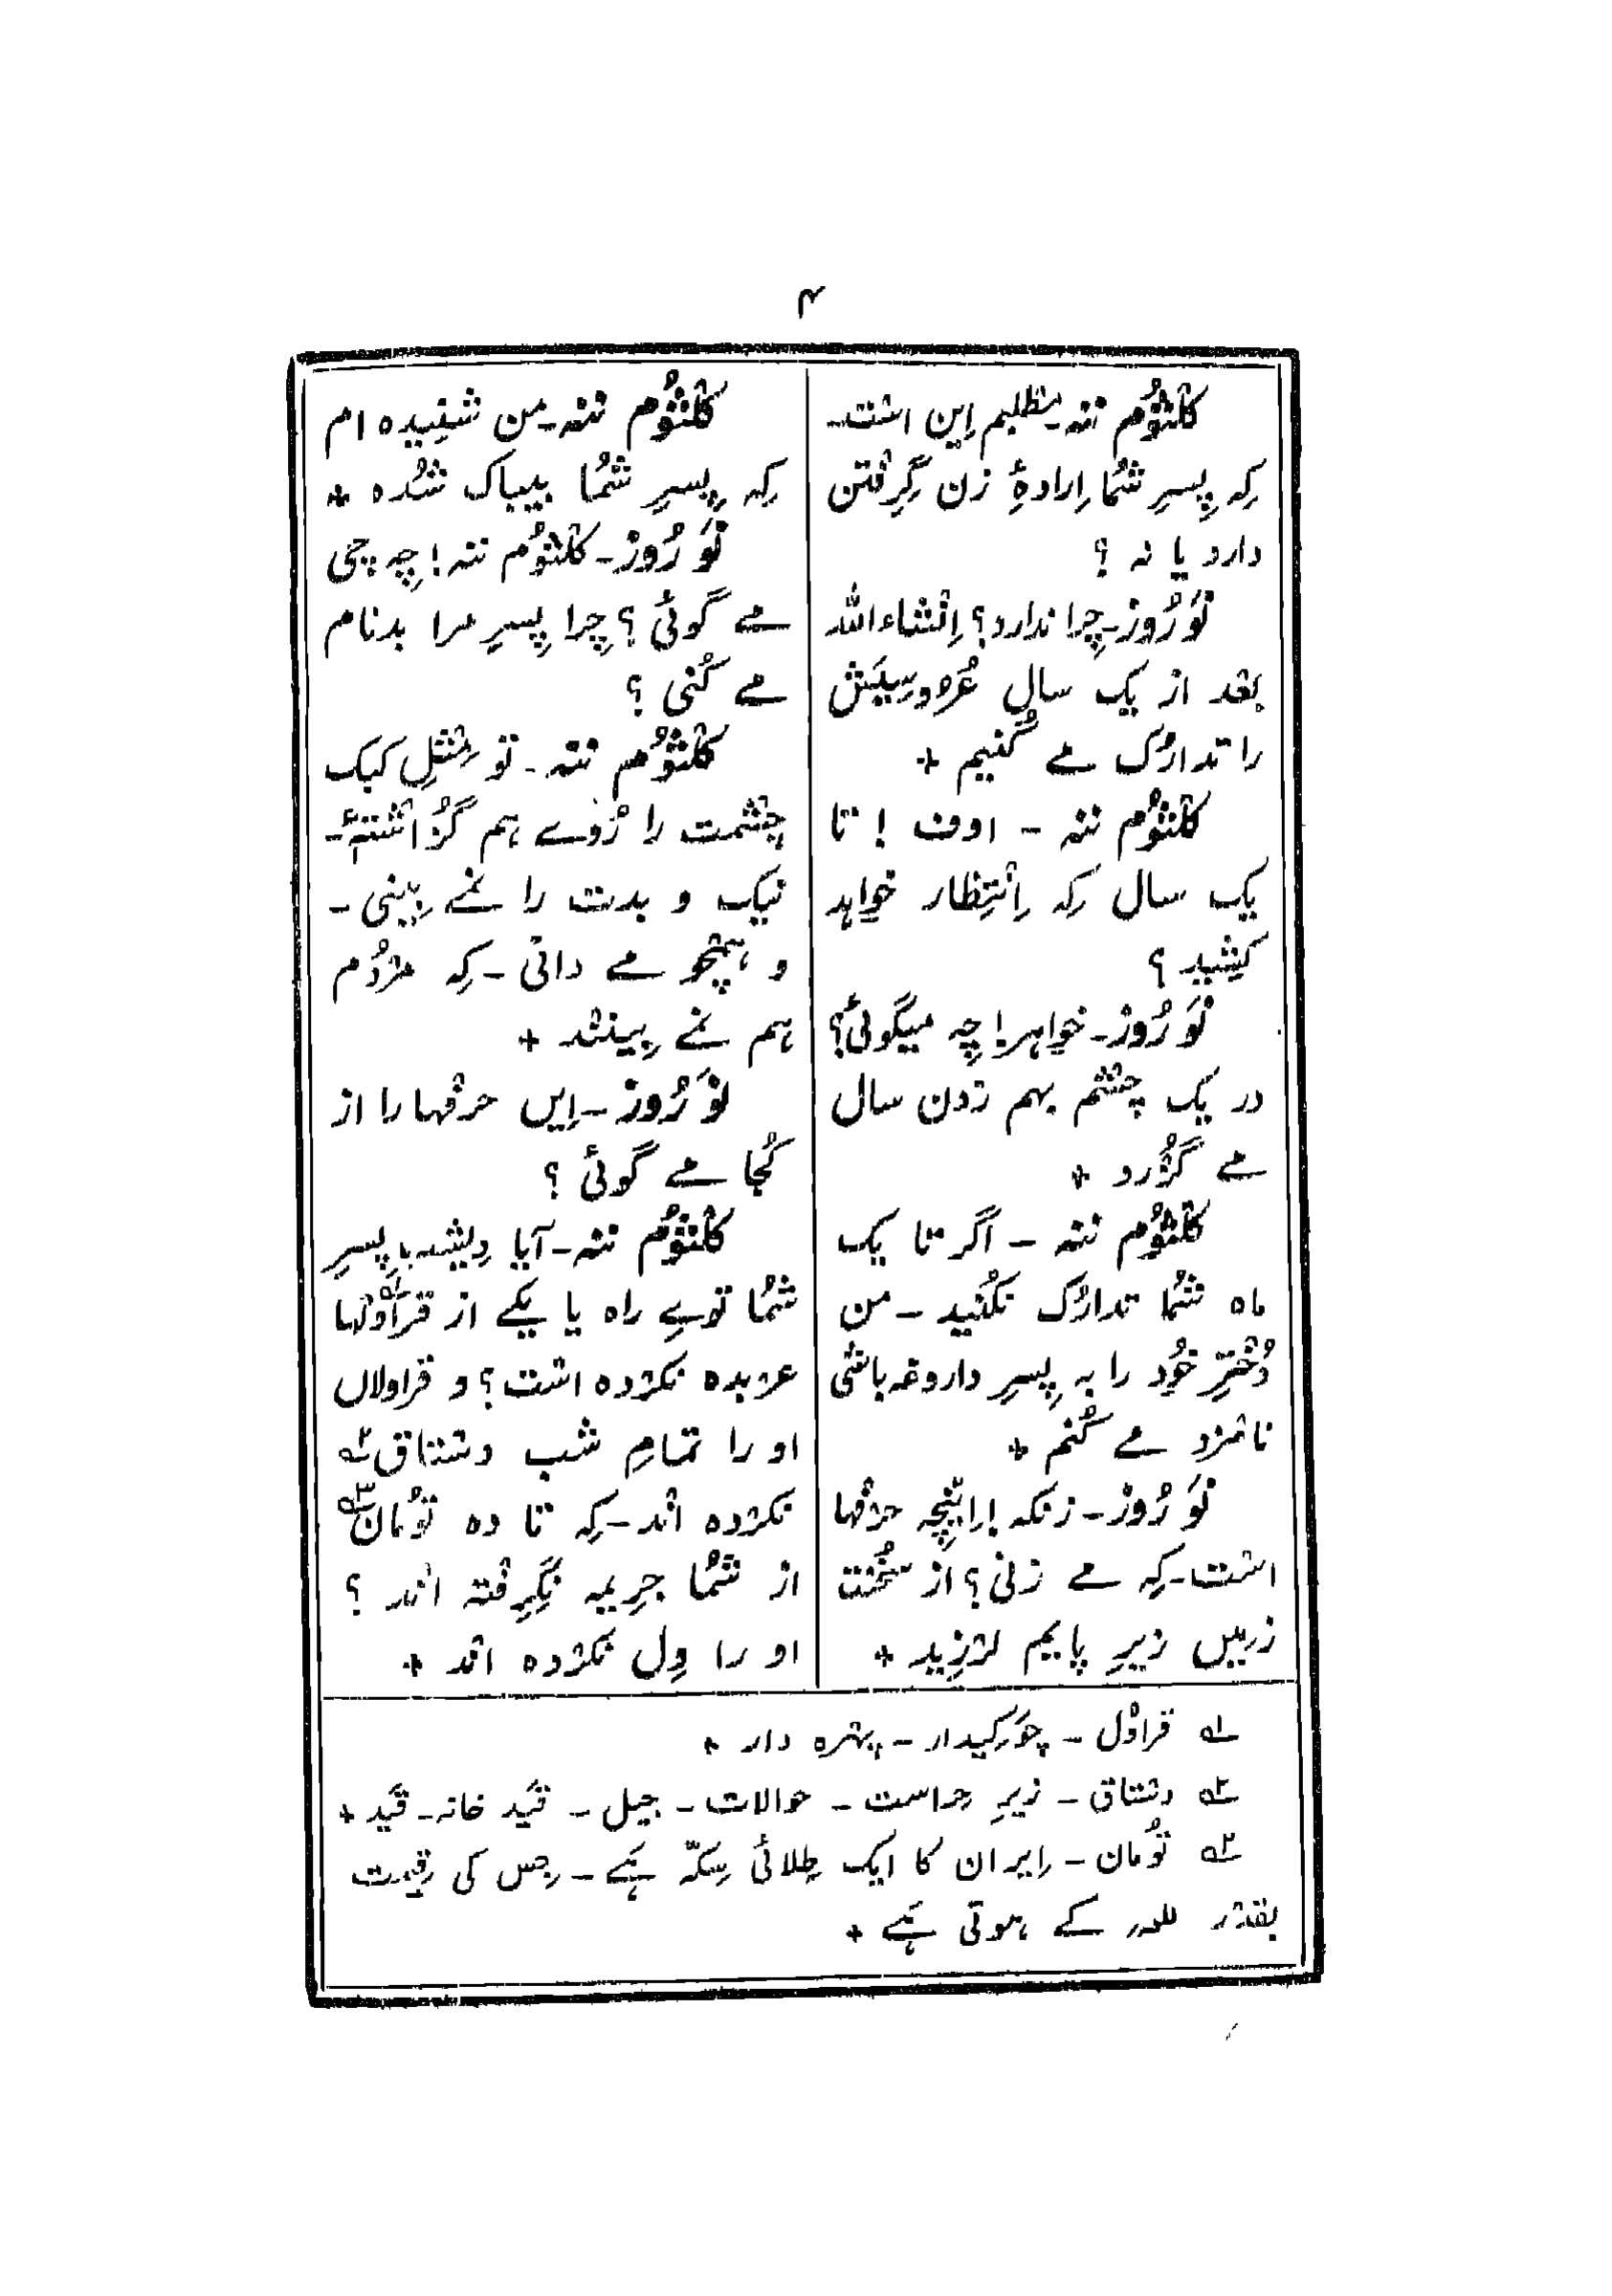 ۴
کلثوُم ننہ۔ مطلبم اِین است۔
کِہ پِسرِ شُما اِرادۂِ زن گِرِفتن
دارد یا نہ ؟
نَورُوز۔ چِرا ندارد؟ اِنشاءاللہ
بعد از یک سال عُروسِیَش
را تدارُک مے کُنیم +
کلثوُم ننہ - اوف ! تا
یک سال کِہ اِنتِظار خواہد
کشِید ؟
نَورُوز۔ خواہر! چِہ میگوئی؟
در یک چشم بہم زدن سال
مے گُذرد +
کلثوُم ننہ - اگر تا یک
ماہ شُما تدارُک نکُنید - من
دُخترِ خُود را بہ پِسرِ داروغہ باشی
نامزد مے کُنم +
نَورُوز۔ زنکہ! اِینچِہ حرفہا
است۔ کِہ مے زنی؟ از سُخنت
زمِیں زیرِ پایم لرزِید +
کلثوُم ننہ۔ من شنِیدہ ام
کِہ پِسرِ شُما بیباک شُدہ +
نَورُوز۔ کلثوُم ننہ! چِہ چی
مے گوئی؟ چِرا پِسرِ مرا بدنام
مے کُنی ؟
کلثوُم ننہ۔ تو مِثلِ کبک
چشمت را رُوے ہم گُذاشتۂ۔
نیک و بدت را نمے بِینی -
و ہمچو مے دانی - کِہ مردُم
ہم نمے بِینند +
نَورُوز۔ اِیں حرفہا را از
کُجا مے گوئی ؟
کلثوُم ننہ۔ آیا دِیشب پِسرِ
شُما توے راہ با یکے از قراوُلہا
عربدہ نکردہ است؟ و قراولاں
او را تمامِ شب دستاق
نکردہ اند - کِہ تا دہ تُومان
از شُما جرِیمہ نگِرِفتہ اند ؟
او را وِل نکردہ اند +
۱ قراوُل - چَوکیدار - پہرہ دار +
۲ دستاق - زیرِ حراست - حوالات - جیل - قَید خانہ - قَید +
۳ تُومان - اِیران کا ایک طِلائی سِکّہ ہَے - جِس کی قِیمت
بقدر کے ہوتی ہَے +